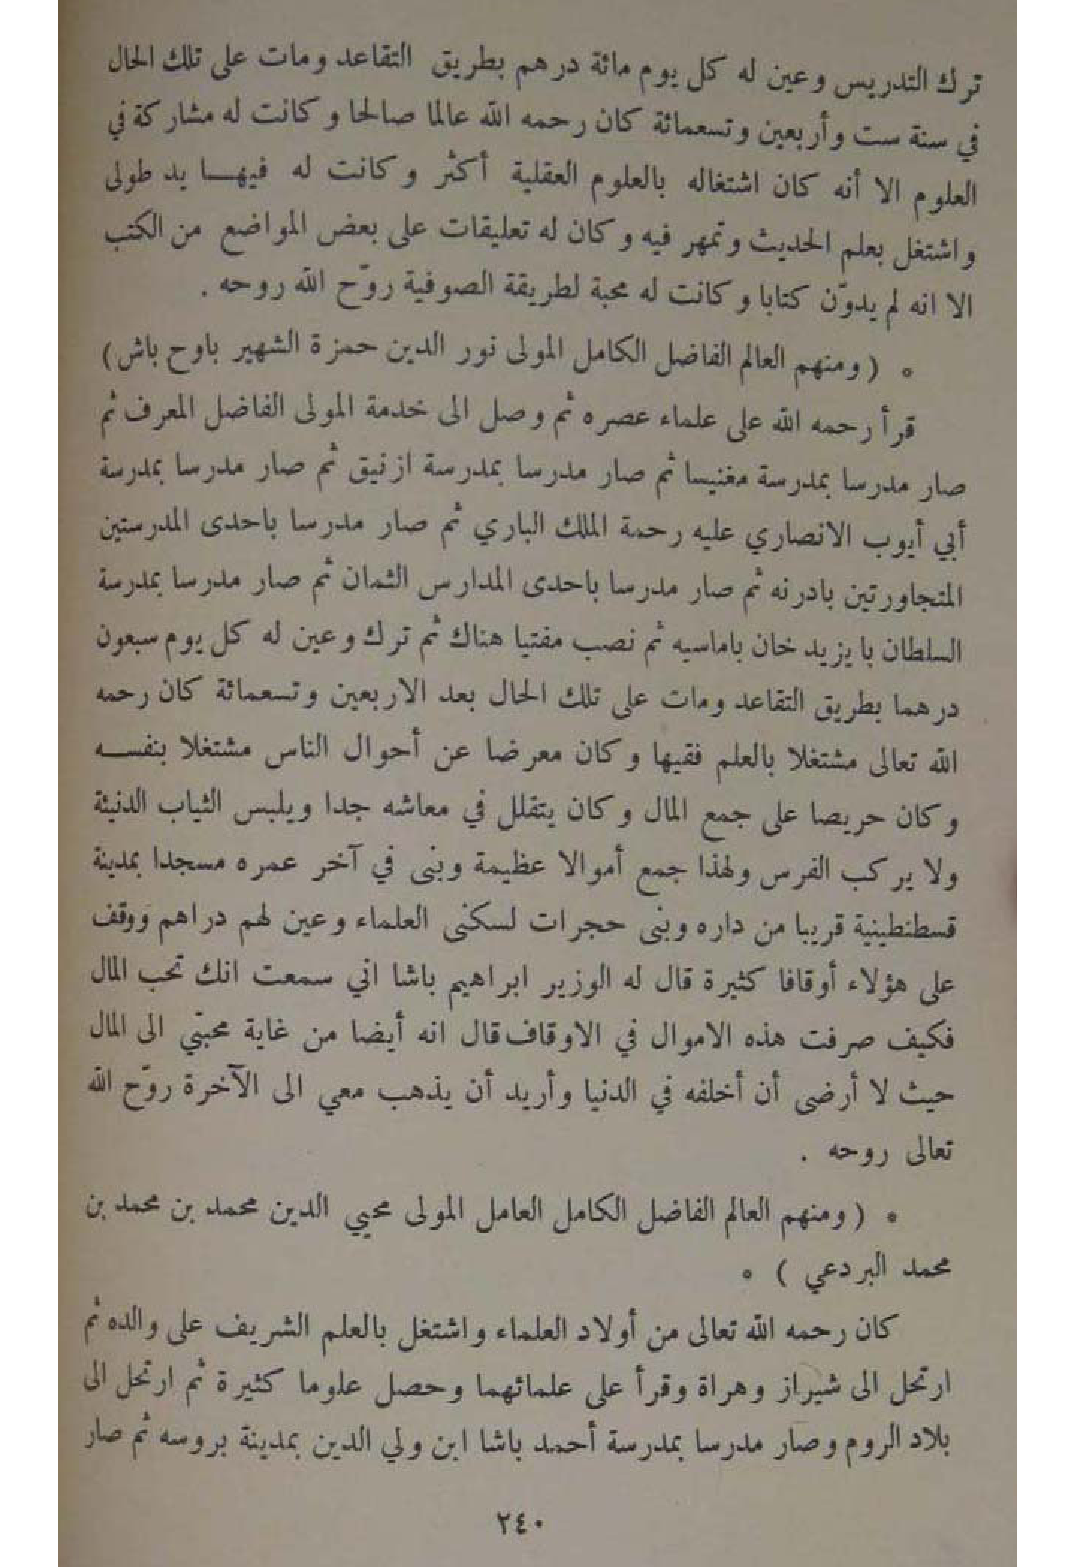 ترك التدريس وعين له كل يوم مائة درهم بطريق التقاعد ومات على تلك الحال
في سنة ست وأربعين وتسعمائة كان رحمه الله عالما صالحا وكانت له مشاركة في
العلوم الا أنه كان اشتغاله بالعلوم العقلية أكثر وكانت له فيهـــا يد طولى
واشتغل بعلم الحديث وتمهر فيه وكان له تعليقات على بعض المواضع من الكتب
الا انه لم يدوّن كتابا وكانت له محبة لطريقة الصوفية روّح الله روحه .
* ( ومنهم العالم الفاضل الكامل المولى نور الدين حمزة الشهير باوح باش )
قرأ رحمه الله على علماء عصره ثم وصل الى خدمة المولى الفاضل المعرف ثم
صار مدرسا بمدرسة مغنيسا ثم صار مدرسا بمدرسة ازنيق ثم صار مدرسا بمدرسة
أبي أيوب الانصاري عليه رحمة الملك الباري ثم صار مدرسا باحدى المدرستين
المتجاورتين بادرنه ثم صار مدرسا باحدى المدارس الثمان ثم صار مدرسا بمدرسة
السلطان بايزيد خان باماسيه ثم نصب مفتيا هناك ثم ترك وعين له كل يوم سبعون
درهما بطريق التقاعد ومات على تلك الحال بعد الاربعين وتسعمائة كان رحمه
الله تعالى مشتغلا بالعلم فقيها وكان معرضا عن أحوال الناس مشتغلا بنفســه
وكان حريصا على جمع المال وكان يتقلل في معاشه جدا ويلبس الثياب الدنيئة
ولا يركب الفرس ولهذا جمع أموالا عظيمة وبنى في آخر عمره مسجدا بمدينة
قسطنطينية قريبا من داره وبنى حجرات لسكنى العلماء وعين لهم دراهم ووقف
على هؤلاء أوقافا كثيرة قال له الوزير ابراهيم باشا اني سمعت انك تحب المال
فكيف صرفت هذه الاموال في الاوقاف قال انه أيضا من غاية محبّتي الى المال
حيث لا أرضى أن أخلفه في الدنيا وأريد أن يذهب معي الى الآخرة روّح الله
تعالى روحه .
* ( ومنهم العالم الفاضل الكامل العامل المولى محيي الدين محمد بن محمد بن
محمد البردعي ) *
كان رحمه الله تعالى من أولاد العلماء واشتغل بالعلم الشريف على والده ثم
ارتحل الى شيراز وهراة وقرأ على علمائهما وحصل علوما كثيرة ثم ارتحل الى
بلاد الروم وصار مدرسا بمدرسة أحمد باشا ابن ولي الدين بمدينة بروسه ثم صار
٢٤٠